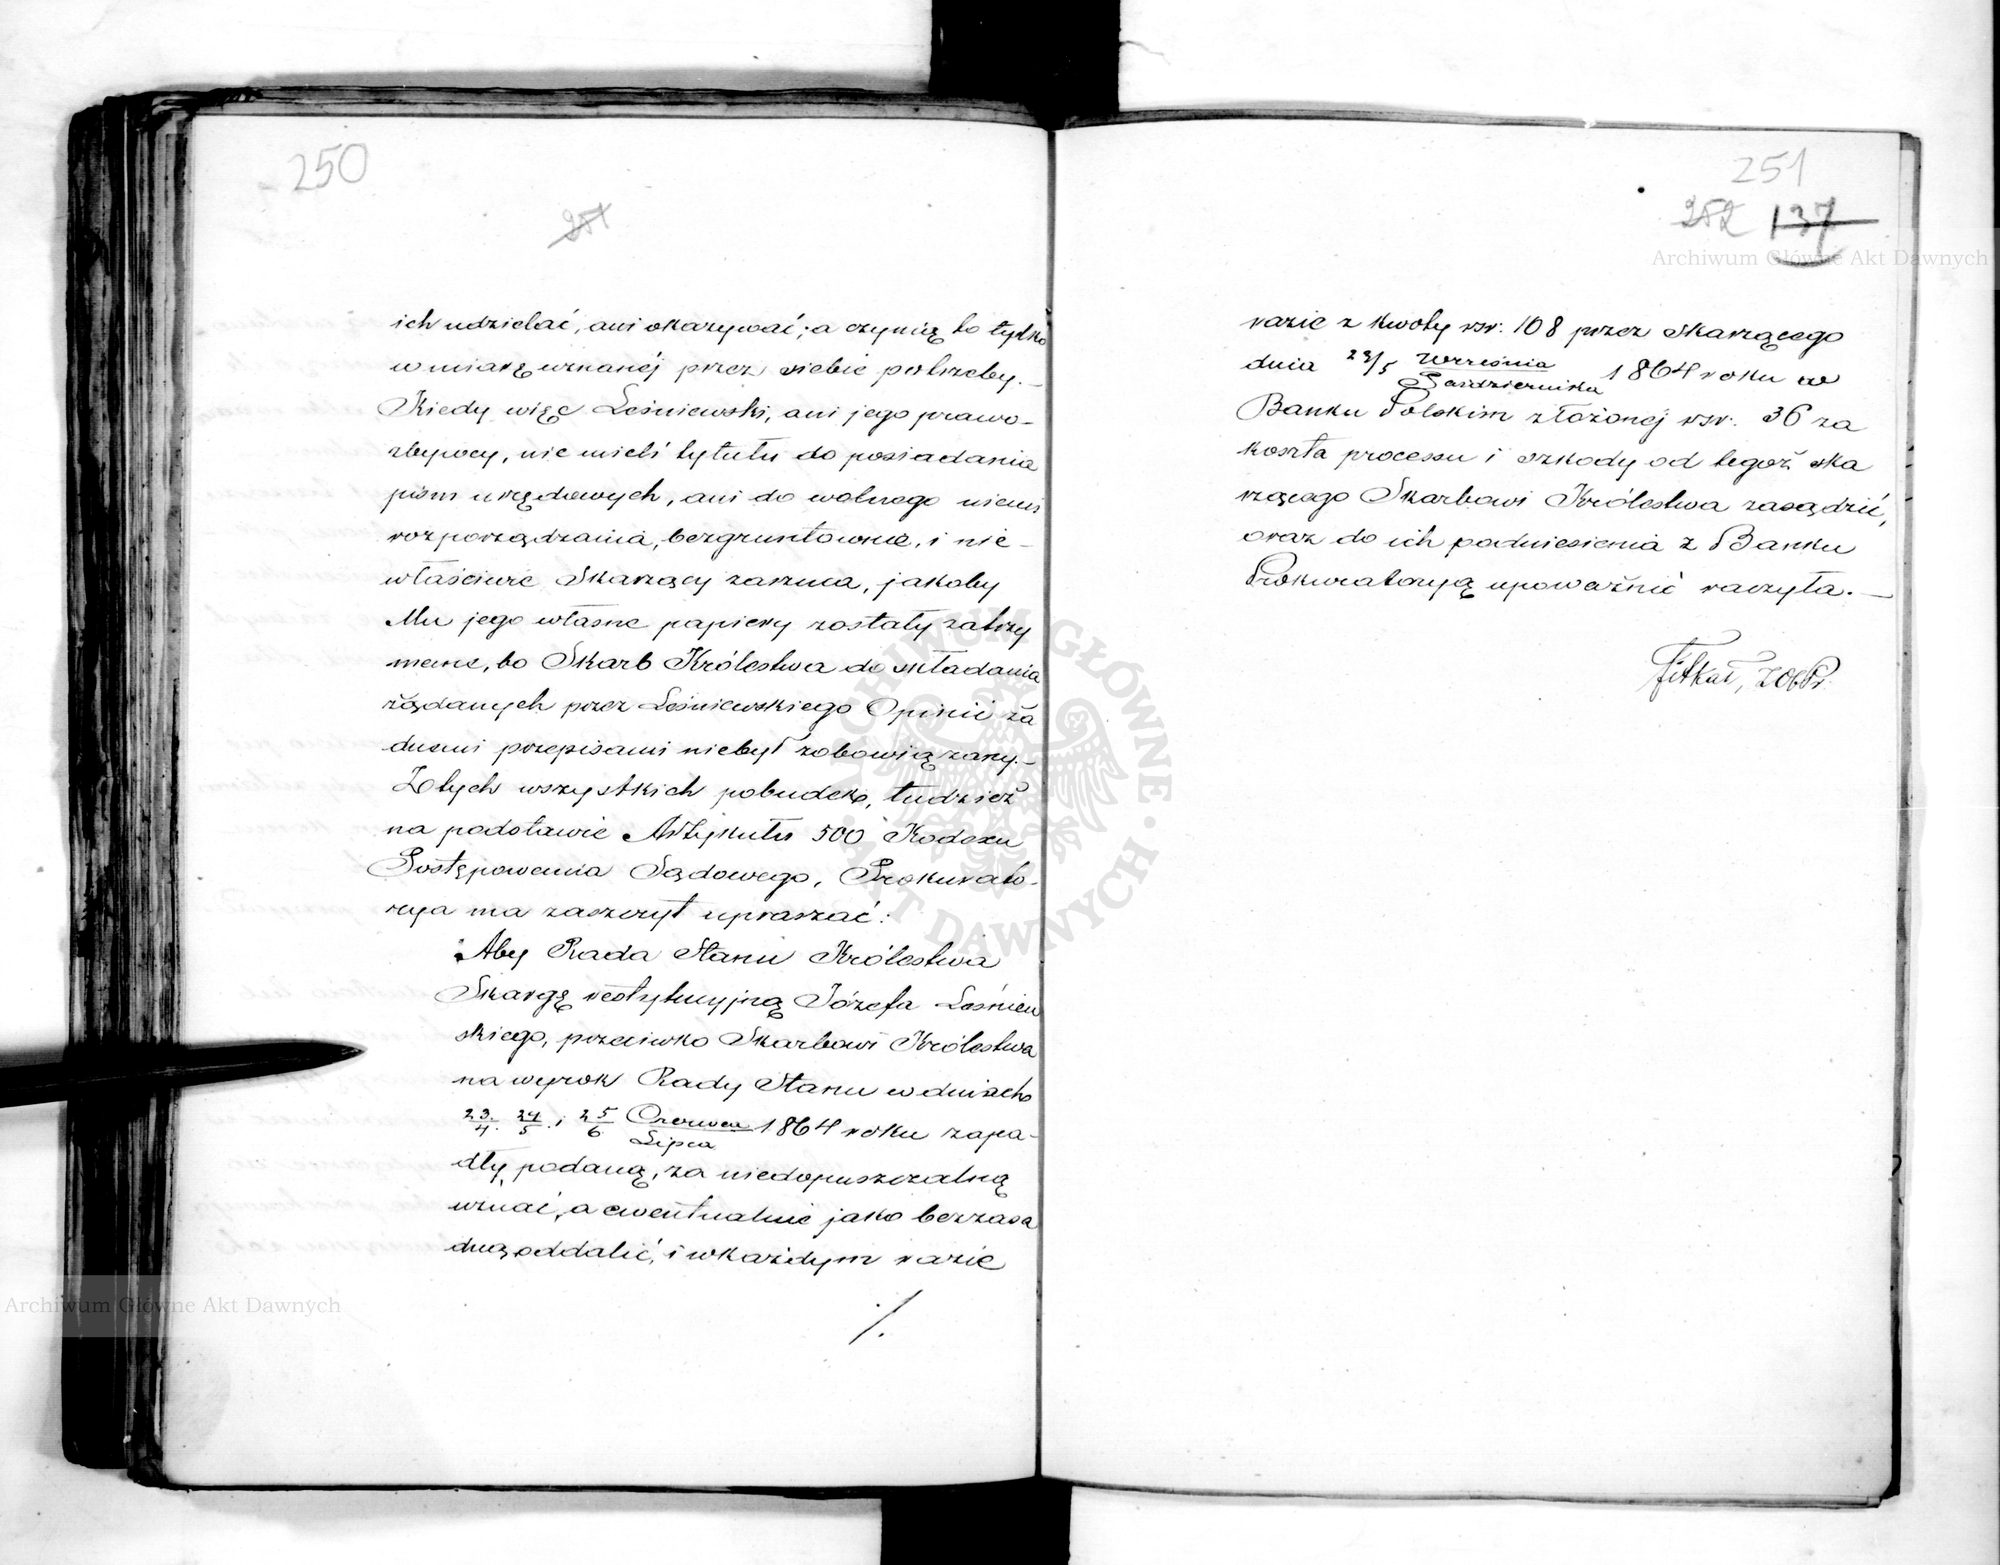 250
251
ich udzielać, ani okazywać; a czynią to tylko
w miarę uznanéj przez siebie potrzeby.–
Kiedy więc Leśniewski, ani jego prawo-
zbywcy, nie mieli tytułu do posiadania
pism urzędowych, ani do wolnego niemi
rozporządzania, bezgruntownie, i nie-
właściwie Skarżący zarzuca, jakoby
Mu jego własne papiery zostały zatrzy
mane, bo Skarb Królestwa do składania
żądanych przez Leśniewskiego Opinii ża
dnemi przepisami niebył zobowiązany.–
Z tych wszystkich pobudek, tudzież
na podstawie Artykułu 500 Kodexu
Postępowania Sądowego, Prokurato-
rya ma zaszczyt upraszać:
Aby Rada Stanu Królestwa
Skargę restytucyjną Józefa Leśniew
skiego, przeciwko Skarbowi Królestwa
na wyrok Rady Stanu w dniach
23/4. 24/5. i 25/6 Czerwca/Lipca 1864 roku zapa-
dły, podaną, za niedopuszczalną
uznać, a ewentualnie jako bezzasa
dną oddalić, i w każdym razie
./.
251
252 137
razie z kwoty rsr. 108 przez Skarżącego
dnia 23/5 Września/Października 1864 roku w
Banku Polskim złożonej rsr. 36 za
koszta processu i szkody od tegoż ska
rżącego Skarbowi Królestwa zasądzić,
oraz do ich podniesienia z Banku
Prokuratoryą upoważnić raczyła.–
Archiwum Główne Akt Dawnych
Archiwum Główne Akt Dawnych
ARCHIWUM GŁÓWNE · AKT DAWNYCH ·